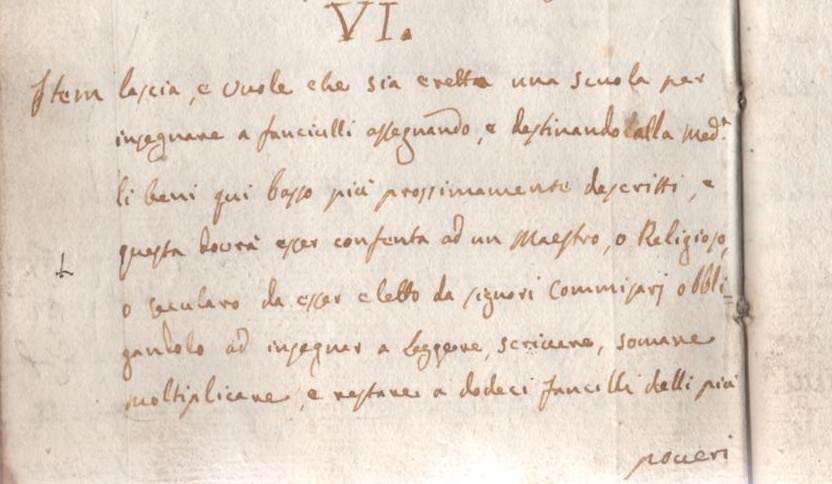 VI.
Item lascia, e vuole che sia eretta una scuola per
insegnare a fanciulli assegnando, e destinando alla med.ª
li beni qui basso più prossimamente descritti, e
questa dovrà esser confenta ad un Maestro, o Religioso,
o secularo da esser eletto da signori Commisarj obbli=
gandolo ad insegnar a leggere, scrivere, somare
moltiplicare, e restare a dodeci fancilli delli più
poveri